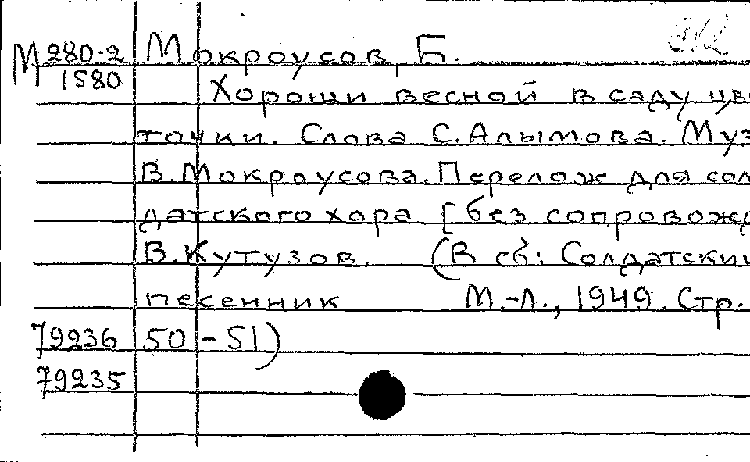 М 280-2 Мокроусов, Б.
1580 Хороши весной в саду цве
точки. Слова С. Алымова. Муз
В. Мокроусова. Перелож для сол
датского хора [без сопровожд
В. Кутузов. (В сб: Солдатский
песенник М.-Л., 1949. Стр.
79236 50-51)
79235